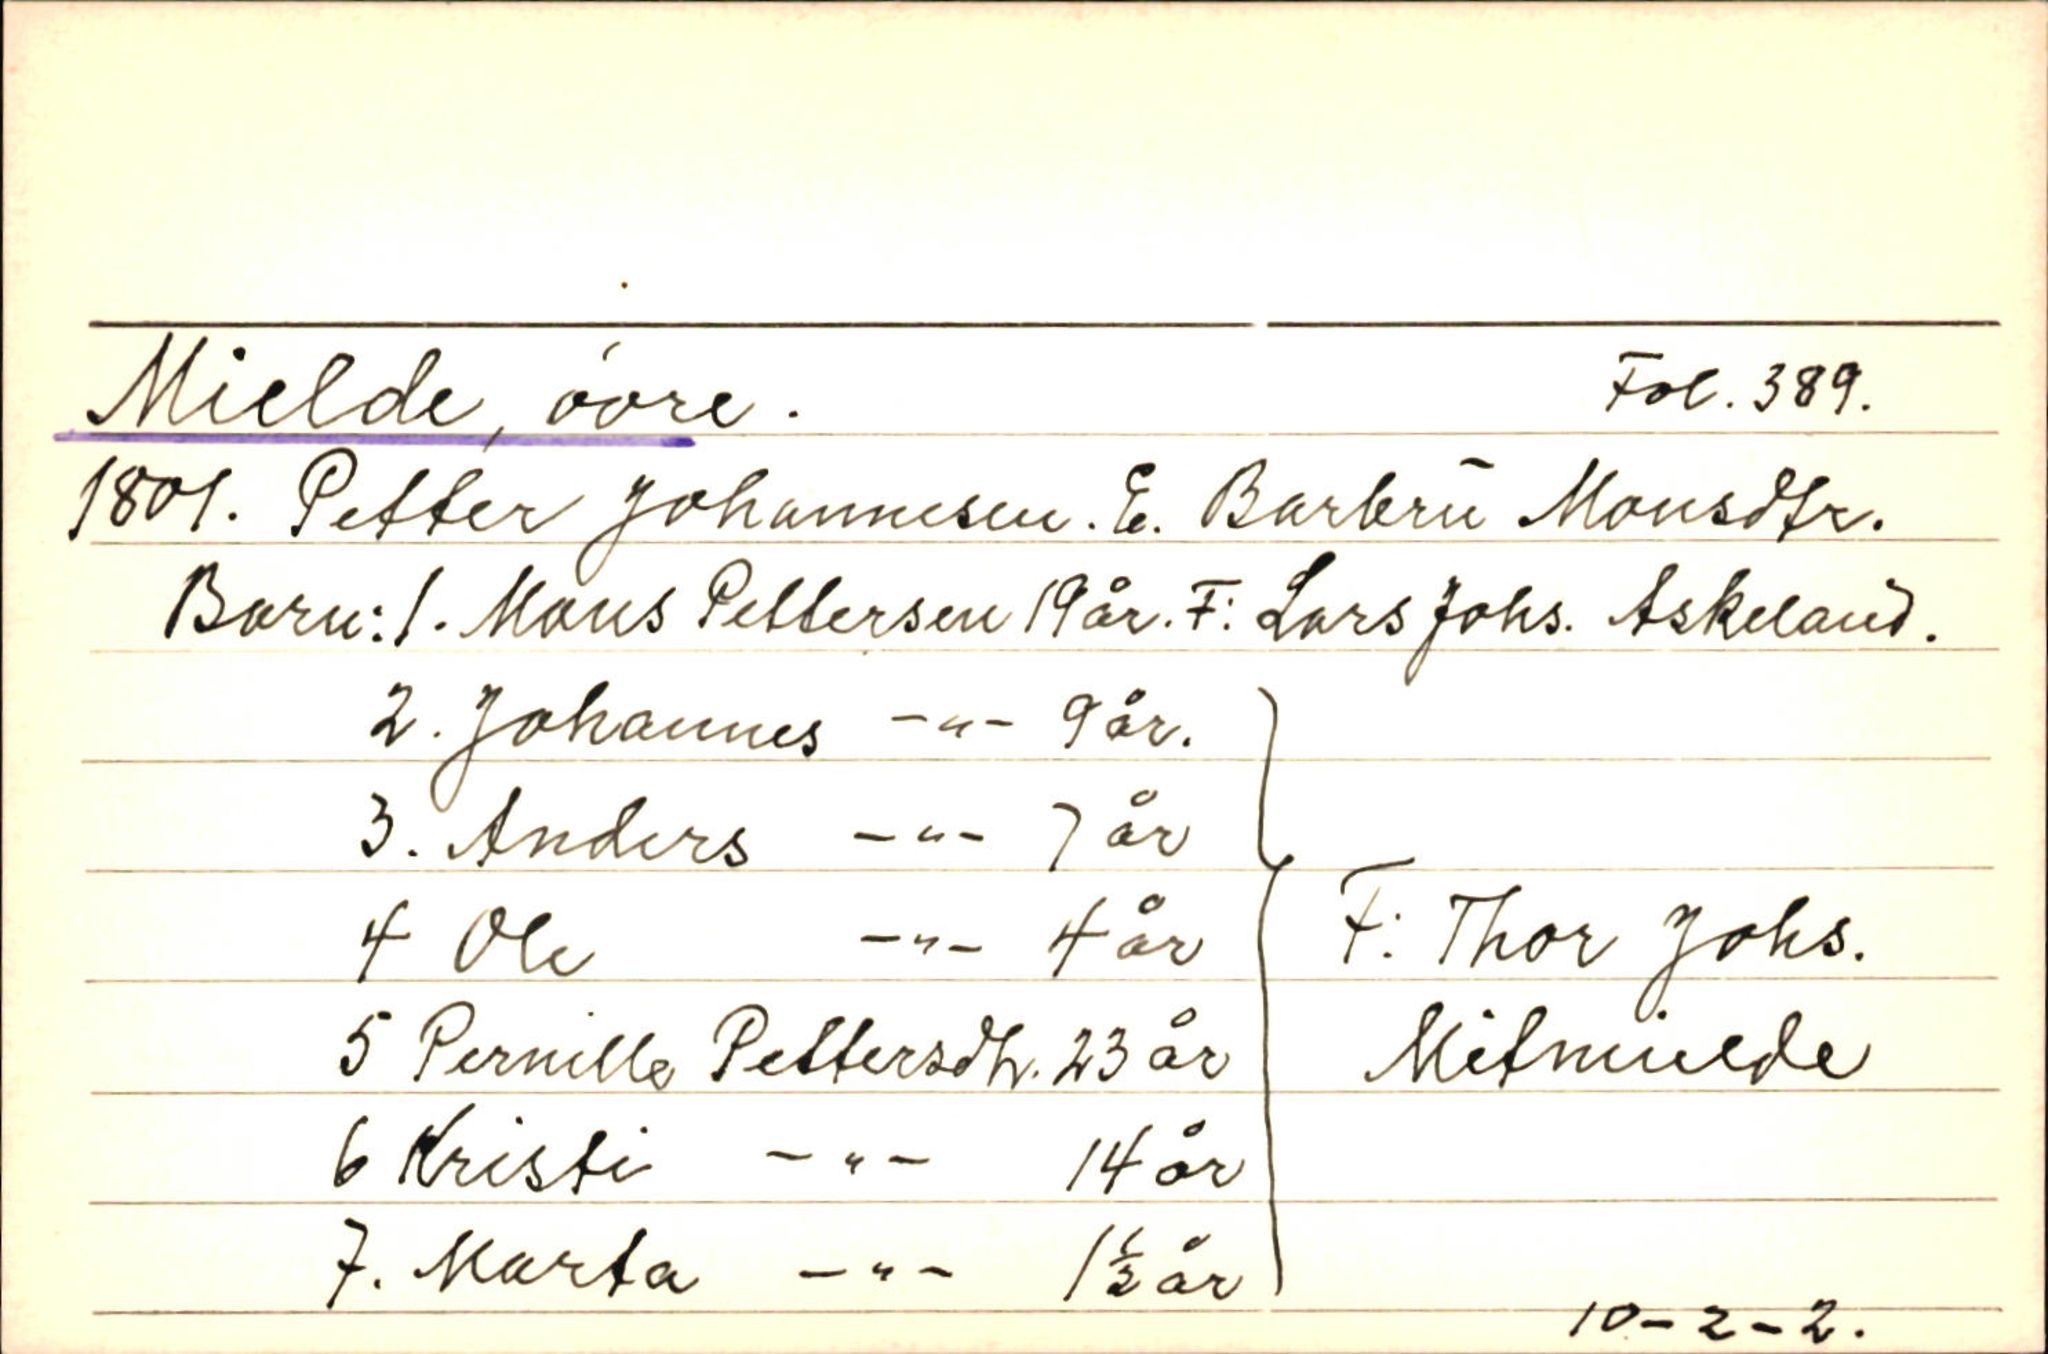 Mielde, övre. Fol. 389.
1801. Petter Johannesen. E. Barbrū Monsdtr.
Born: 1. Mons Pettersen 19 år. F: Lars Johs. Askeland.
2. Johannes -"- 9 år.
3. Anders -"- 7 år
4 Ole -"- 4 år
F: Thor Johs.
5 Pernille Pettersdtr. 23 år
Mitmielde
6 Kristi -"- 14 år
7. Marta -"- 1½ år
10-2-2.